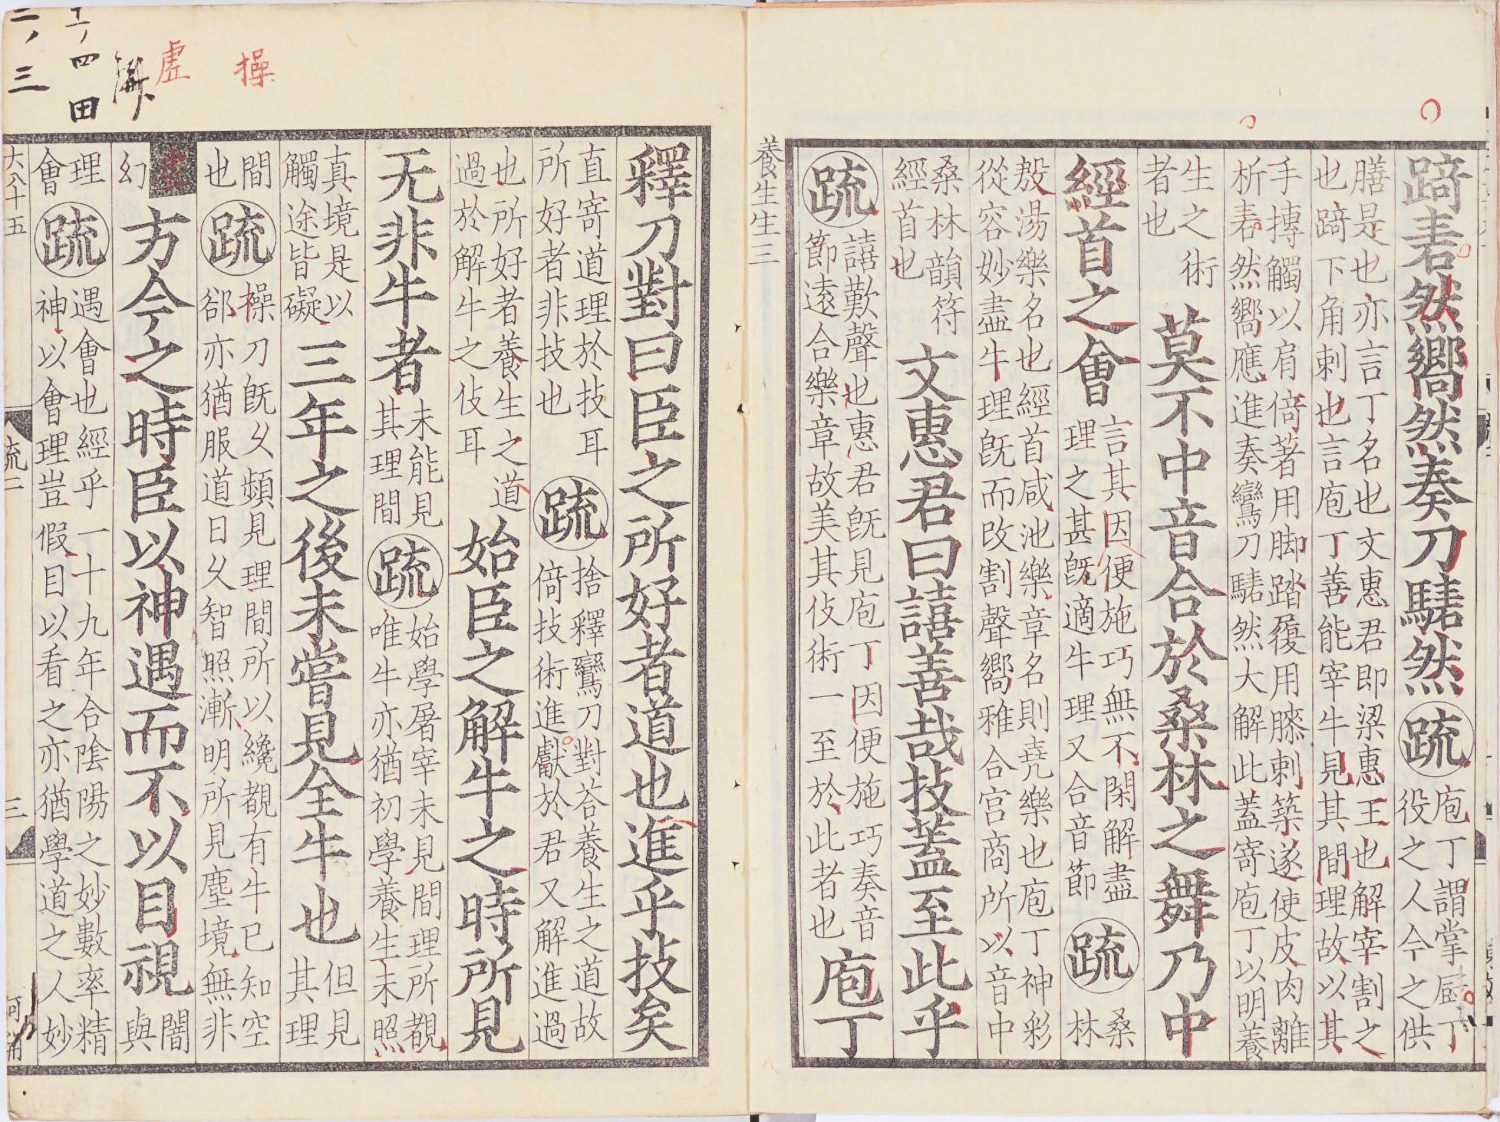 踦砉然嚮然奏刀騞然疏
庖丁謂掌厨丁
役之人今之供
膳是也亦言丁名也文惠君即梁惠王也解宰割之
也踦下角刺也言庖丁善能宰牛見其間理故以其
手搏觸以肩倚著用脚踏履用膝刺築遂使皮肉離
析砉然嚮應進奏鸞刀騞然大解此蓋寄庖丁以明養
生之術
者也
莫不中音合於桑林之舞乃中
經首之會
言其因便施巧無不閑解盡
理之甚既適牛理又合音節
疏
桑
林
殷湯樂名也經首咸池樂章名則堯樂也庖丁神彩
從容妙盡牛理既而改割聲嚮雅合宫商所以音中
桑林韻符
經首也
文惠君曰譆善哉技蓋至此乎
疏
譆歎聲也惠君既見庖丁因便施巧奏音
節遠合樂章故美其伎術一至於此者也
庖丁
養生生三
操
虛
釋刀對曰臣之所好者道也進乎技矣
直寄道理於技耳
所好者非技也
疏
捨釋鸞刀對荅養生之道故
倚技術進獻於君又解進過
也所好者養生之道
過於解牛之伎耳
始臣之解牛之時所見
无非牛者
未能見
其理間
疏
始學屠宰未見間理所覩
唯牛亦猶初學養生未照
真境是以
觸途皆礙
三年之後未嘗見全牛也
但見
其理
間
也
疏
操刀既久頻見理間所以纔覩有牛已知空
郤亦猶服道日久智照漸明所見塵境無非
虛
幻
方今之時臣以神遇而不以目視
闇
與
理
會
疏
遇會也經乎一十九年合陰陽之妙數率精
神以會理豈假目以看之亦猶學道之人妙
大八十五
疏二
三